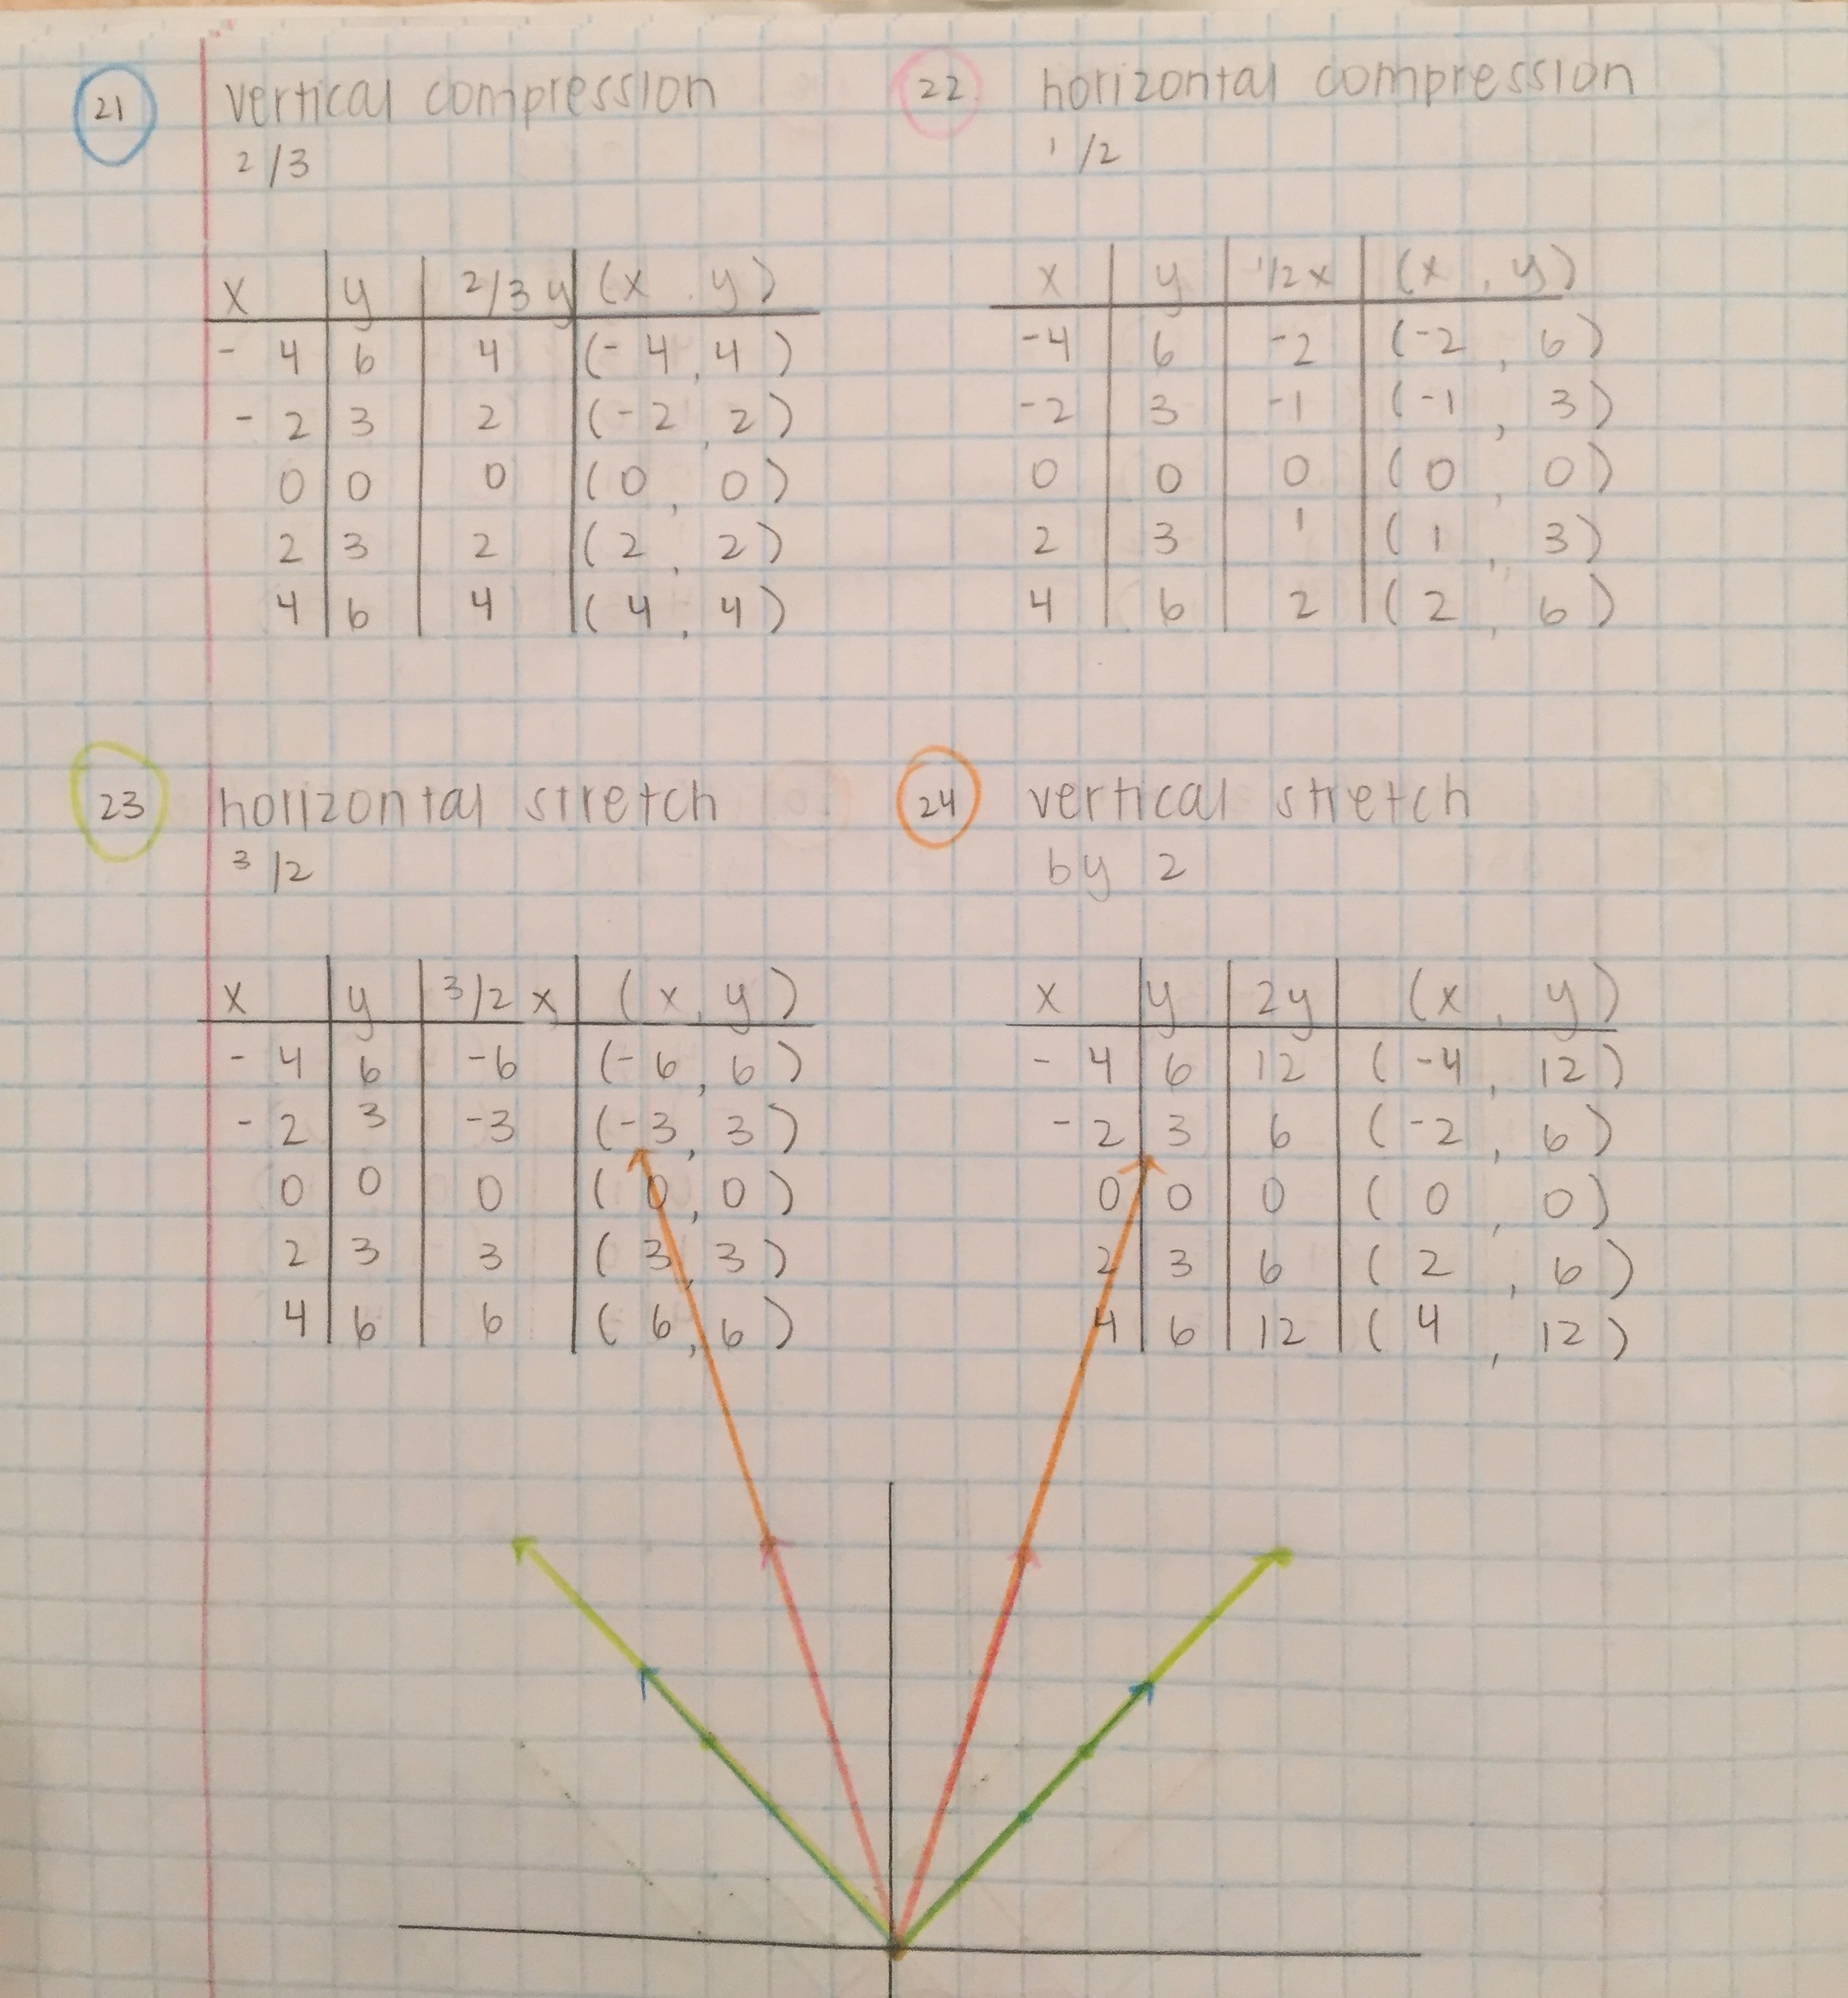 21 vertical compression
2/3
x y 2/3 y (x, y)
-4 6 4 (-4, 4)
-2 3 2 (-2, 2)
0 0 0 (0, 0)
2 3 2 (2, 2)
4 6 4 (4, 4)
22 horizontal compression
1/2
x y 1/2 x (x, y)
-4 6 -2 (-2, 6)
-2 3 -1 (-1, 3)
0 0 0 (0, 0)
2 3 1 (1, 3)
4 6 2 (2, 6)
23 horizontal stretch
3/2
x y 3/2 x (x, y)
-4 6 -6 (-6, 6)
-2 3 -3 (-3, 3)
0 0 0 (0, 0)
2 3 3 (3, 3)
4 6 6 (6, 6)
24 vertical stretch
by 2
x y 2y (x, y)
-4 6 12 (-4, 12)
-2 3 6 (-2, 6)
0 0 0 (0, 0)
2 3 6 (2, 6)
4 6 12 (4, 12)